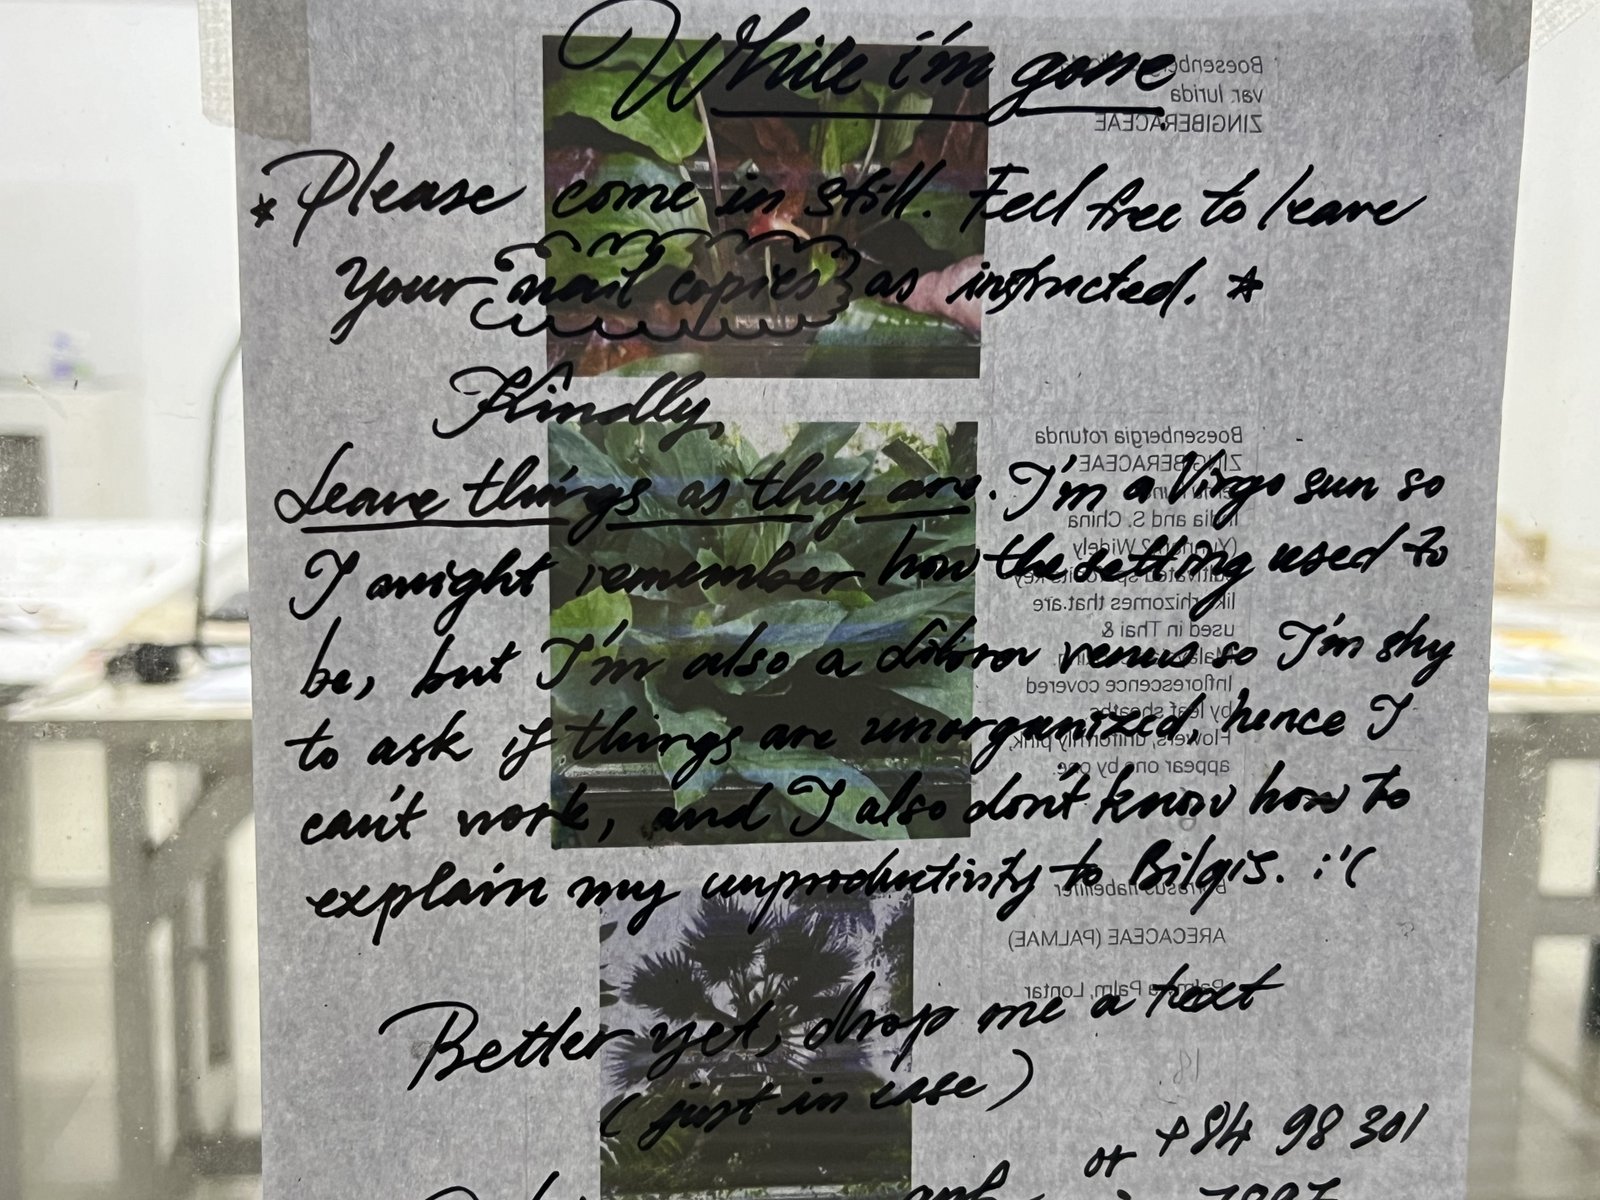 While i'm gone
* Please come in still. Feel free to leave
your nail copies as instructed. *
Kindly,
Leave things as they are. I'm a Virgo sun so
I might remember how the setting used to
be, but I'm also a Libra venus so I'm shy
to ask if things are unorganized, hence I
can't work, and I also don't know how to
explain my unproductivity to Bilqis. :'(
Better yet, drop me a text
(just in case)
or +84 98 301
var. lurida
ZINGIBERACEAE
Boesenbergia rotunda
ZINGIBERACEAE
India and S. China
like rhizomes that are
used in Thai &
Inflorescence covered
by leaf sheaths.
Flowers, uniformly pink,
appear one by one.
ARECACEAE (PALMAE)
Palm, Lontar
18.